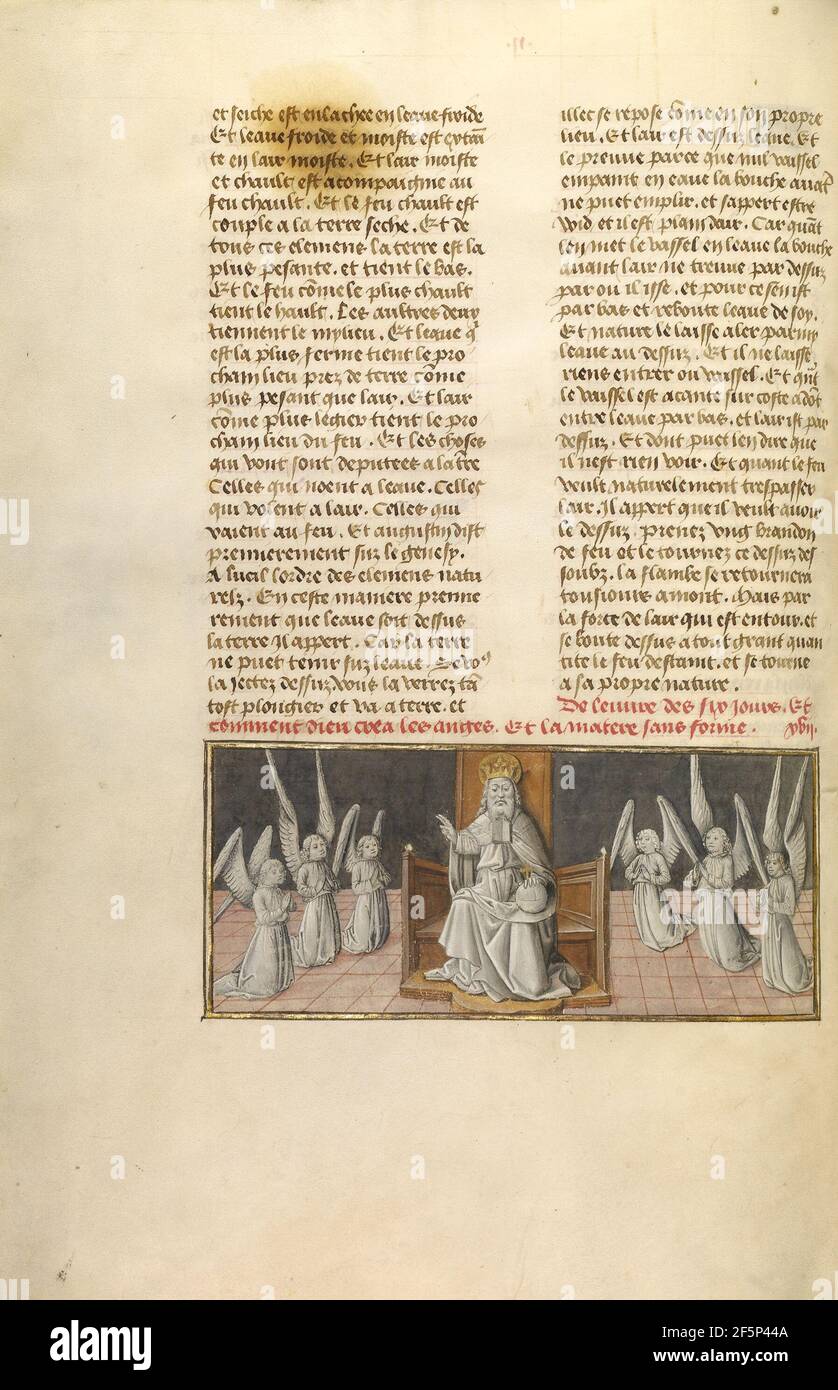 et seiche est enlachee en leaue froide
Et leaue froide et moiste est cōtrain
te en lair moiste. Et lair moiste
et chault est acompaignie au
feu chault. Et le feu chault est
couple a la terre seche. Et de
tous ces elemens la terre est la
plus pesante. et tient le bas.
Et le feu cōme le plus chault
tient le hault. Les aultres deux
tiennent le mylieu. Et leaue q̄
est la plus ferme tient le pro
chain lieu prez de terre cōme
plus pesant que lair. Et lair
cōme plus legier tient le pro
chain lieu du feu. Et les choses
qui vont sont deputees a la t̄re
Celles qui noent a leaue. Celles
qui volent a lair. Celles qui
vaient au feu. Et augustin dist
premierement sur le genesy.
A lucil lordre des elemens natu
relz. En ceste maniere premie
rement que leaue soit dessus
la terre Il appert. Car la terre
ne puet tenir sur leaue. Se vo⁹
la jectez dessus vous la verrez tā
tost plongier et va a terre. et
illec se repose cōme en son propre
lieu. Et lair est dessus leaue. Et
le preuue parce que nul vaissel
empaint en eaue la bouche auāt
ne puet emplir. et sappert estre
vuid et il est plain dair. Car quāt
len met le vassel en leaue la bouche
auant lair ne treuue par dessus
par ou il isse. et pour ce sen ist
par bas et reboute leaue de soy.
Et nature le laisse aler parmy
leaue au dessus. Et il ne laisse
riens entrer ou vaissel. Et quāt
le vaissel est acante sur coste adōt
entre leaue par bas. et lair ist par
dessus. Et dont puet len dire que
il nest rien voir. Et quant le feu
veult naturelement trespasser
lair. Il appert que il veult auoir
le dessus. prenez vng brandon
de feu et le tournez ce dessus des
soubz. la flambe se retournera
tousiours amont. Mais par
la force de lair qui est entour. et
se boute dessus a tout grant quan
tite le feu destaint. et se tourne
a sa propre nature.
De leuure des six jours. Et
comment dieu crea les anges. Et la matere sans forme. xvii.
alamy
Image ID: 2F5P44A
www.alamy.com